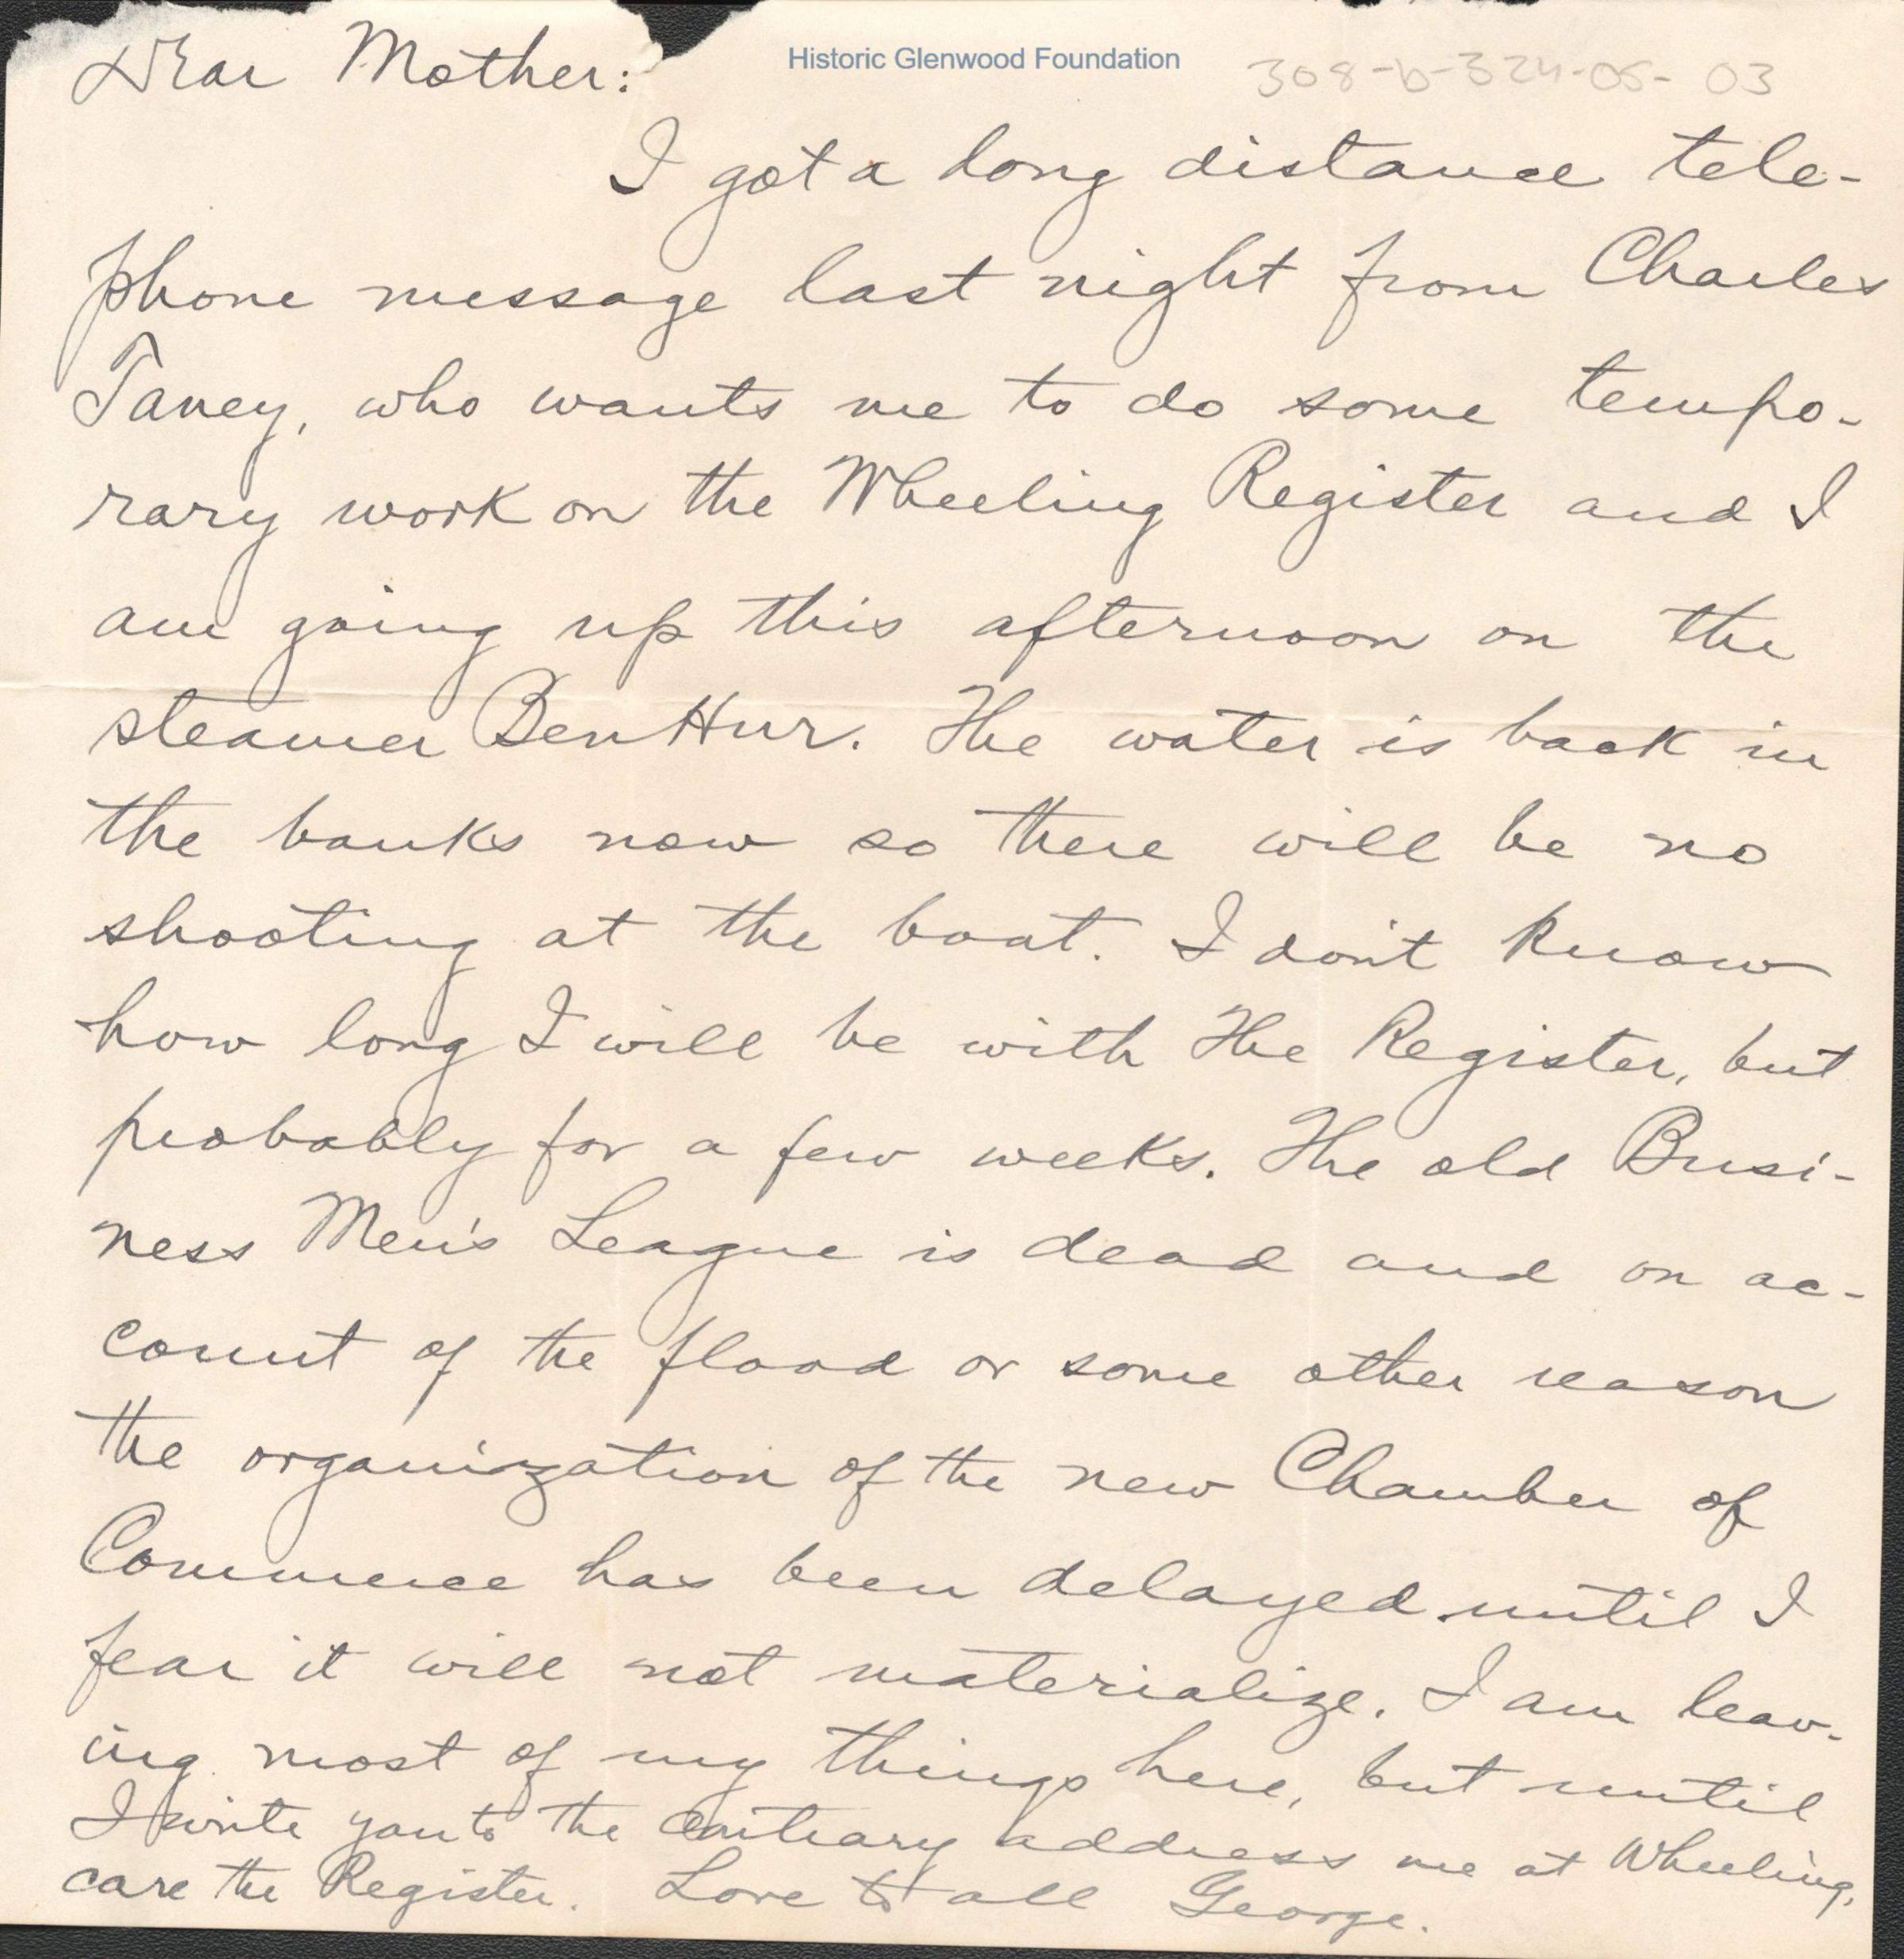 Dear Mother:
Historic Glenwood Foundation
308-b-324-05-03
I got a long distance tele-
phone message last night from Charles
Taney, who wants me to do some tempo-
rary work on the Wheeling Register and I
am going up this afternoon on the
steamer Ben Hur. The water is back in
the banks now so there will be no
shooting at the boat. I don't know
how long I will be with The Register, but
probably for a few weeks. The old Busi-
ness Men's League is dead and on ac-
count of the flood or some other reason
the organization of the new Chamber of
Commerce has been delayed until I
fear it will not materialize. I am leav-
ing most of my things here, but until
I write you to the contrary address me at Wheeling,
care the Register. Love to all George.